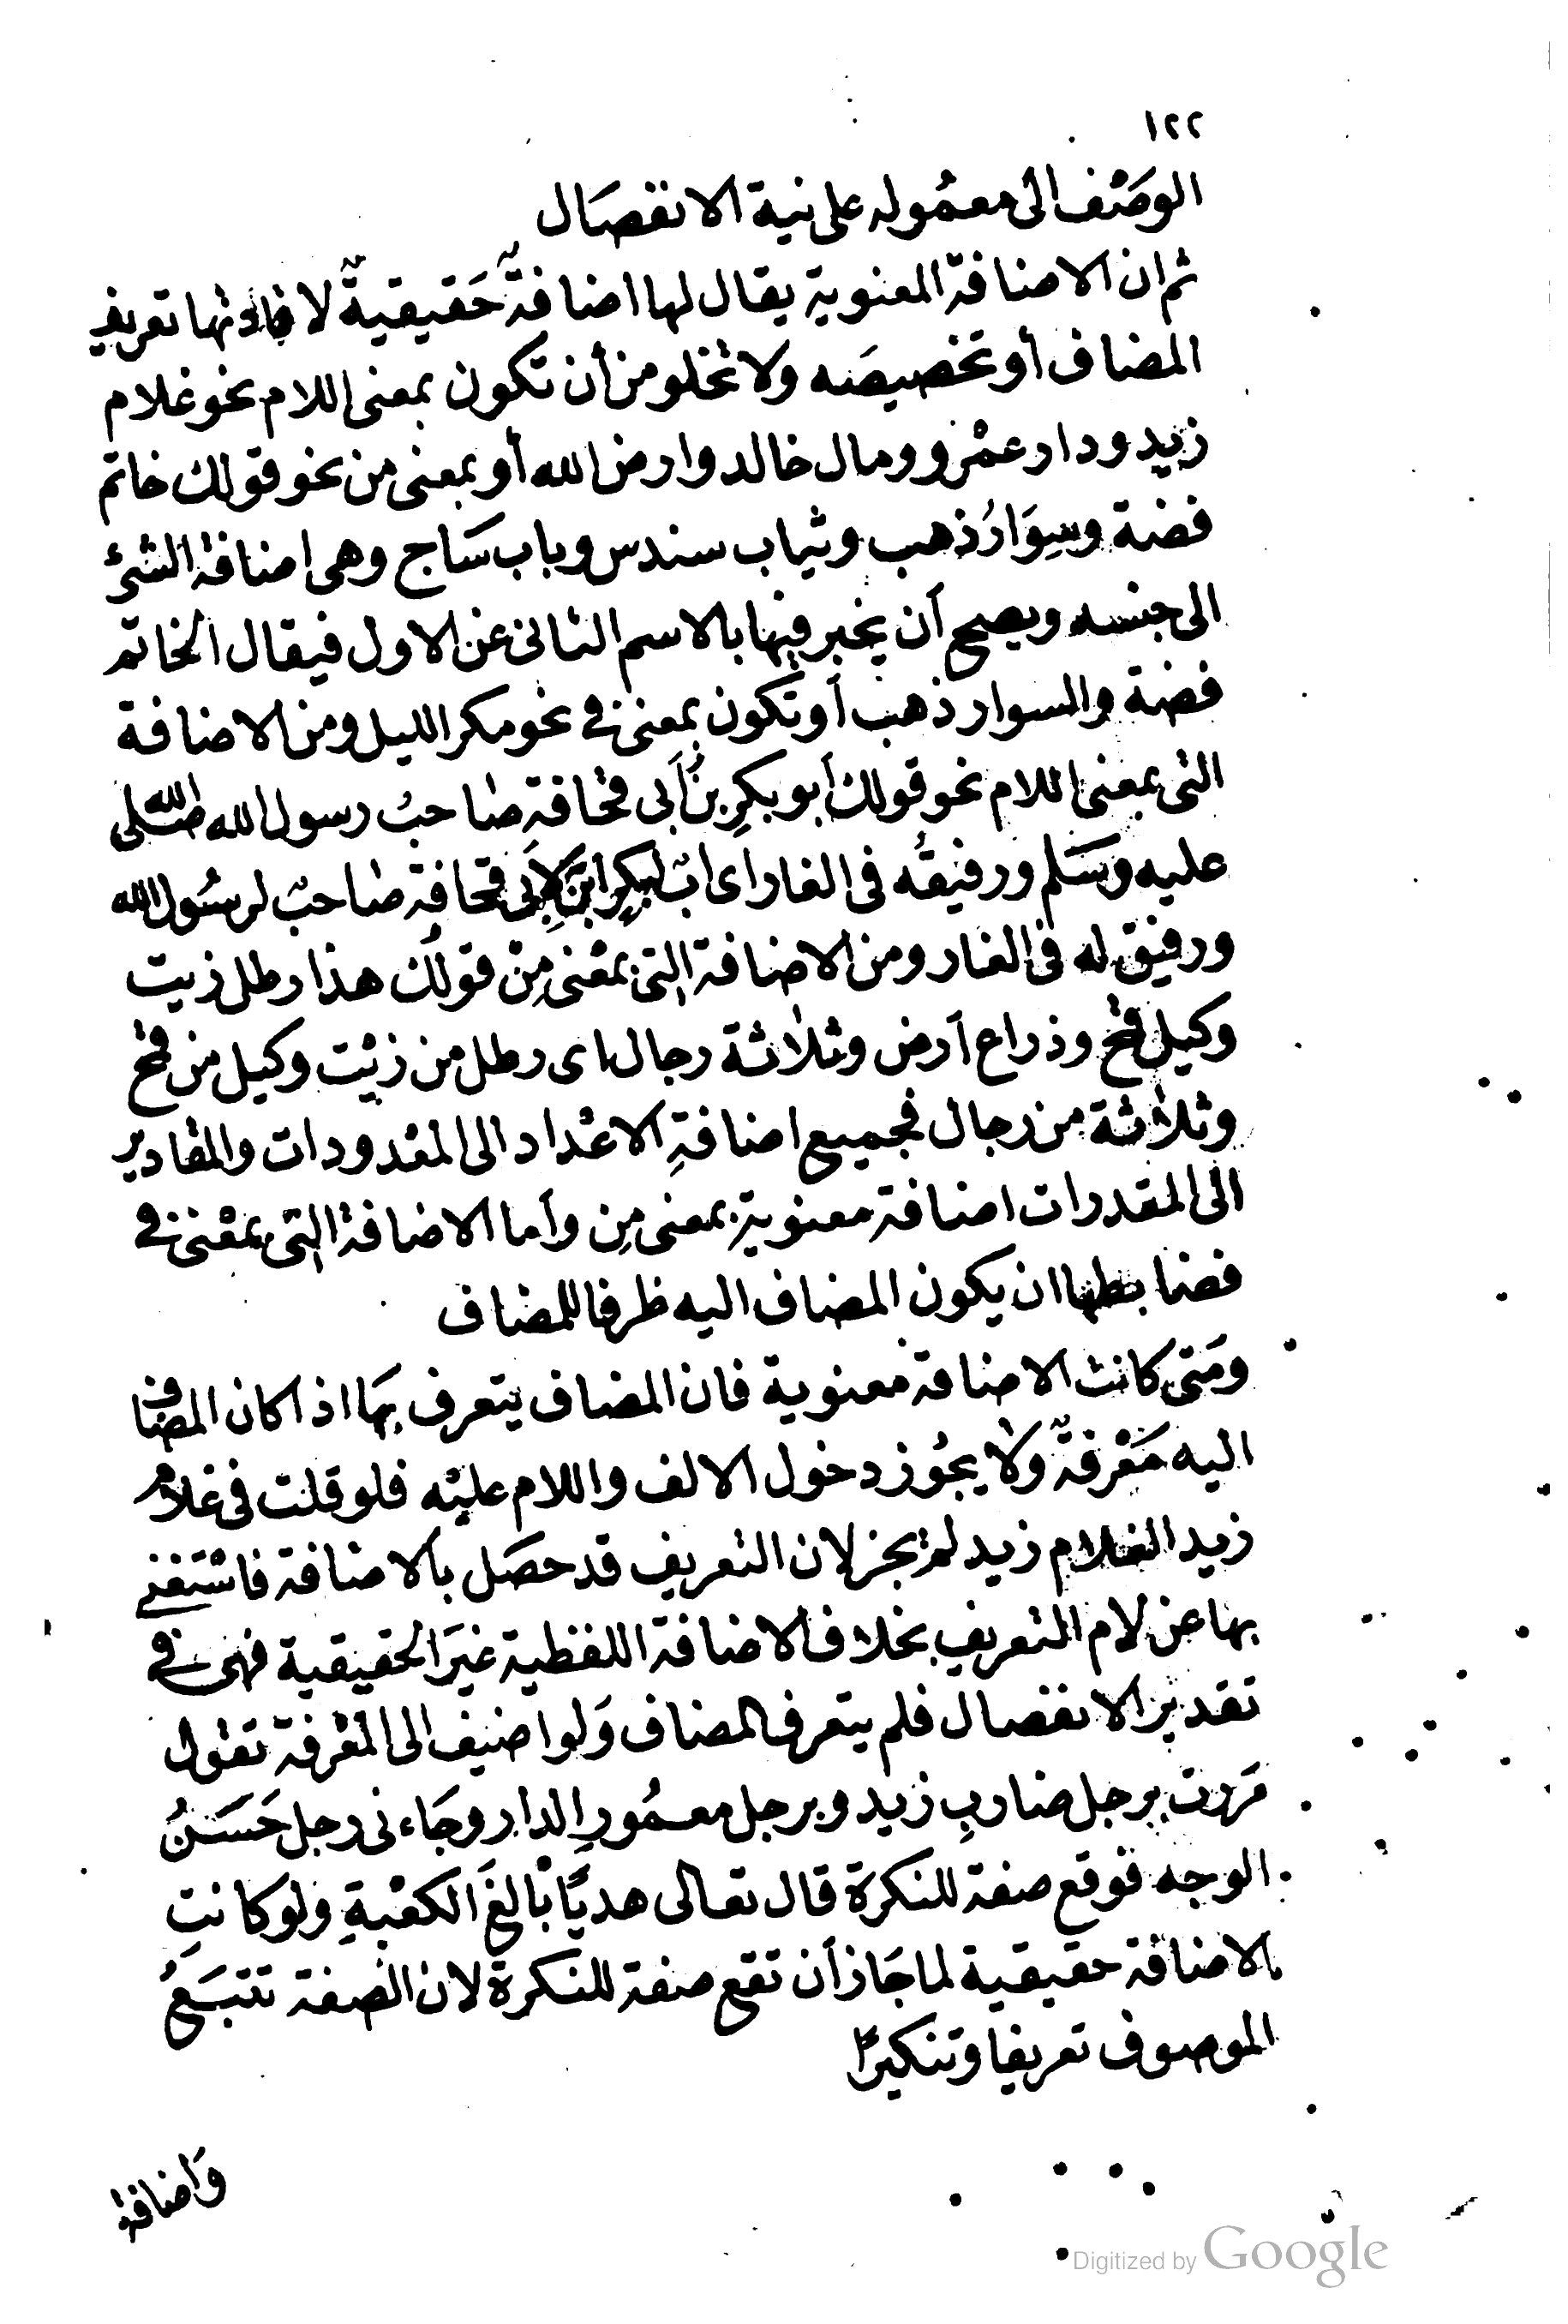 ١٢٢
الوصْف الى معمُوله على نية الانفصَال
ثم ان الاضافة المعنوية يقال لها اضافةٌ حَقيقيةٌ لافادتها تعريف
المضاف أو تخصيصَه ولا تخلو من أن تكون بمعنى اللام نحو غلام
زيد ودار عمْرو ومال خالد وارض الله أو بمعنى من نحو قولك خاتم
فضة وسِوَارُ ذهب وثياب سندس وباب سَاج وهى اضافة الشئ
الى جنسه ويصح أن يخبر فيها بالاسم الثانى عن الاول فيقال الخاتم
فضة والسوار ذهب أو تكون بمعنى فى نحو مكر الليل ومن الاضافة
التى بمعنى اللام نحو قولك أبو بكرِ بنُ أبى قحافة صاحبُ رسول الله صلى الله
عليه وسَلم ورفيقُه فى الغار اى ابٌ لبكرٍ ابنٌ لأبى قحافة صاحبٌ لرسُول الله
ورفيق له فى الغار ومن الاضافة التى بمعْنى مِنْ قولك هذا رطل زيت
وكيل قمح وذراع أرض وثلاثة رجال اى رطل من زيْت وكيل من قمح
وثلاثة من رجال فجميع اضافةِ الاعْداد الى المعْدودات والمقادير
الى المقدرات اضافة معنوية بمعنى مِن وأما الاضافة التى بمعْنى فى
فضابطها ان يكون المضاف اليه ظرفا للمضاف
ومَتى كانت الاضافة معنوية فان المضاف يتعرف بهَا اذا كان المضاف
اليه مَعْرفةً ولا يجُوز دخول الالف واللام عليْه فلو قلت فى غلام
زيد الغلام زيد لم يجز لان التعريف قد حصَل بالاضافة فاسْتغنى
بها عن لام التعريف بخلاف الاضافة اللفظية غيرَ الحقيقية فهى فى
تقدير الانفصال فلم يتعرف المضاف وَلو اضيف الى المعْرفة تقول
مَررت برجل ضاربِ زيد وبرجل معمُورِ الدار وجَاءنى رجل حَسَنُ
الوجه فوقع صفة للنكرة قال تعالى هديًا بالغَ الكعْبةِ ولو كانتِ
الاضافة حقيقية لما جَاز أن تقع صفة للنكرة لان الصفة تتبَعُ
الموصوف تعريفا وتنكيرًا
وَاضافة
Digitized by Google